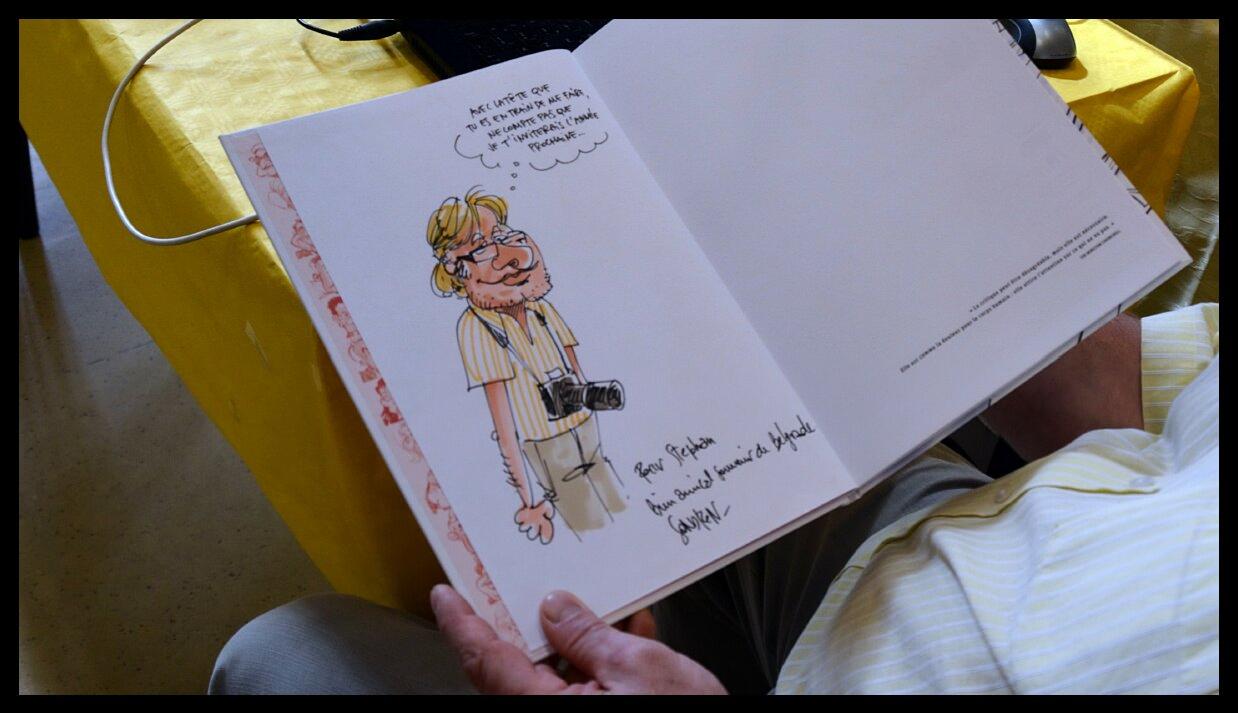 AVEC LA TÊTE QUE
TU ES EN TRAIN DE ME FAIRE,
NE COMPTE PAS QUE
JE T'INVITERAIS L'ANNÉE
PROCHAINE...
Pour Stephan
bien amical souvenir de Belgrade
« La critique peut être désagréable, mais elle est nécessaire.
Elle est comme la douleur pour le corps humain : elle attire l'attention sur ce qui ne va pas. »